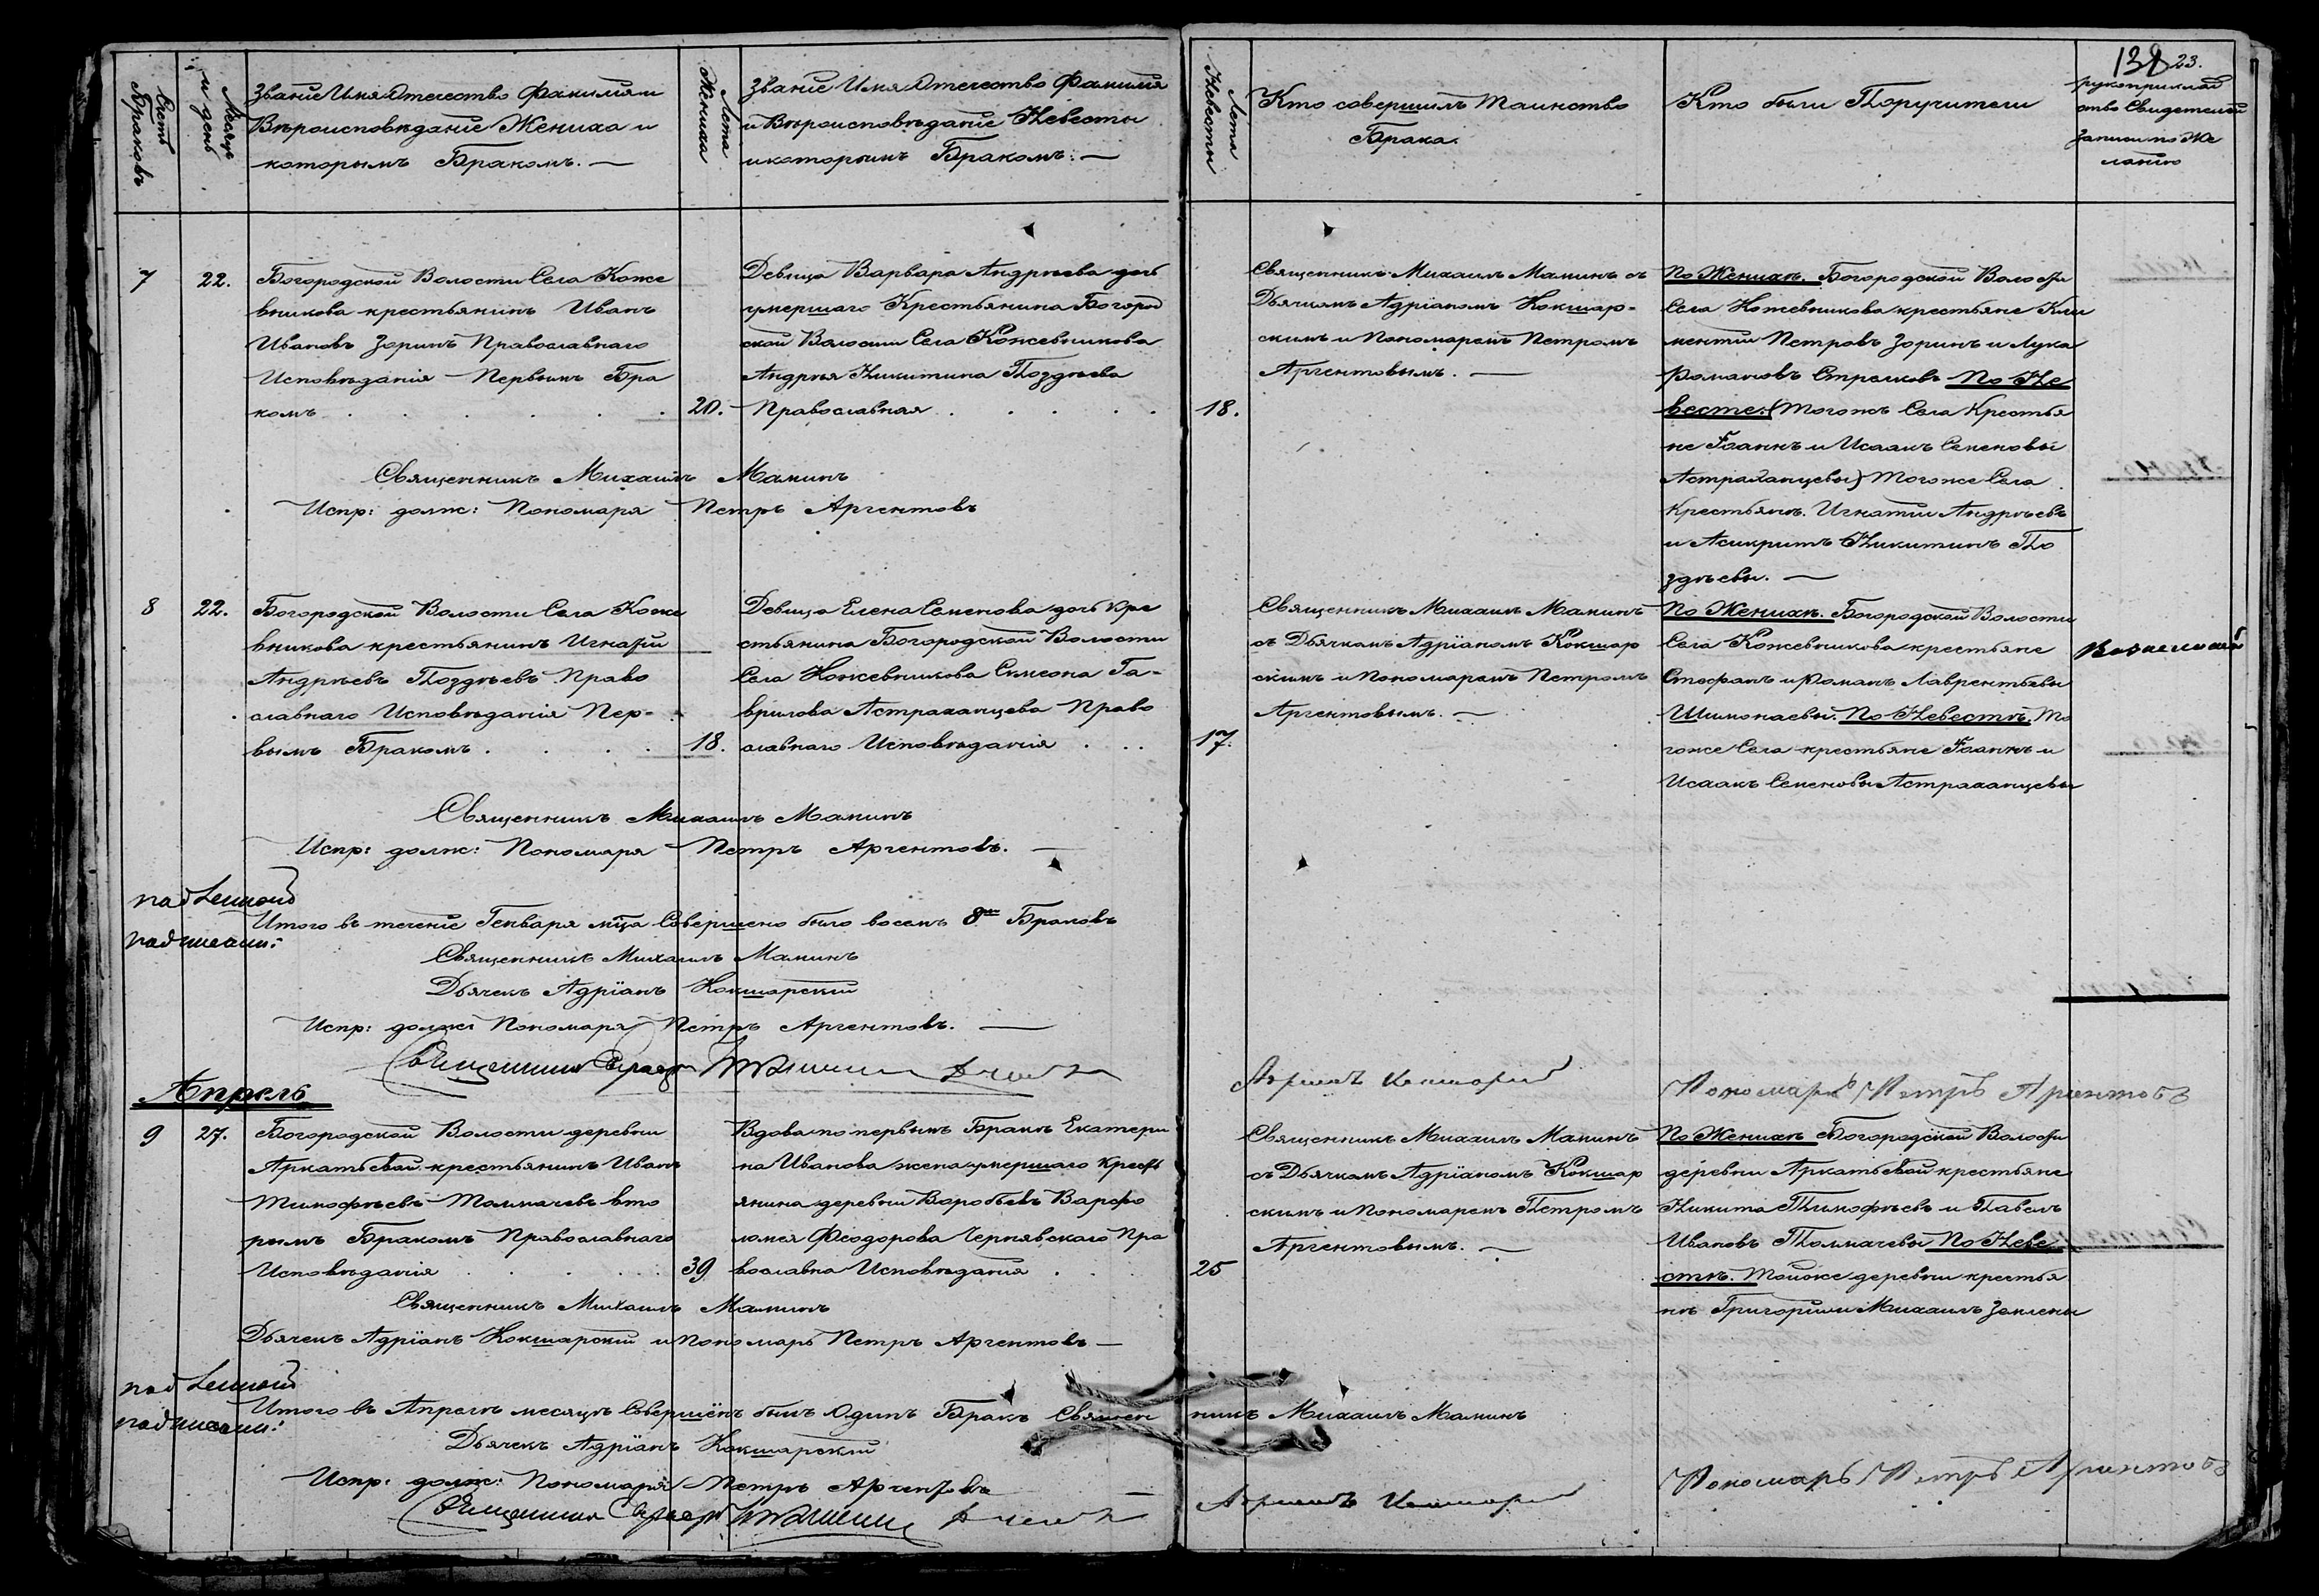 138 23.
Счетъ Браковъ
Месяцъ и день
Званіе Имя Отечество Фамилія и
Вѣроисповѣданіе Жениха и
которымъ Бракомъ. —
Лета Жениха
Званіе Имя Отечество Фамилія
и Вѣроисповѣданіе Невесты
и которымъ Бракомъ: —
Лета Невесты
Кто совершилъ Таинство
Брака.
Кто были Поручители
рукоприклад
ство Свидетелей
записи по Же
ланію
7
22.
Богородской Волости Села Коже
вникова крестьянинъ Иванъ
Ивановъ Зоринъ Православнаго
Исповѣданія Первымъ Бра
комъ
20.
Девица Варвара Андрѣева дочь
умершаго Крестьянина Богород
ской Волости Села Кожевникова
Андрѣя Никитина Позднѣева
Православная
18.
Священникъ Михаилъ Маминъ съ
Дьячкомъ Адріаномъ Кокшар-
скимъ и Пономаремъ Петромъ
Аргентовымъ. —
По Женихѣ. Богородской Волости
Села Кожевникова крестьяне Кли
ментій Петровъ Зоринъ и Лука
Романовъ Стрелковъ По Не
весте: (Тогожъ Села Крестья
не Іоаннъ и Исаакъ Семеновы
Астраханцевы) Тогоже Села
Крестьянъ. Игнатій Андрѣевъ
и Асикритъ Никитинъ По
зднѣевы. —
Священникъ Михаилъ Маминъ
Испр: долж: Пономаря Петръ Аргентовъ
8
22.
Богородской Волости Села Коже
вникова крестьянинъ Игнатій
Андрѣевъ Позднѣевъ Право
славнаго Исповѣданія Пер-
вымъ Бракомъ
18.
Девица Елена Семенова дочь Кре
стьянина Богородской Волости
Села Кожевникова Симеона Га-
врилова Астраханцева Право
славнаго Исповѣданія
17.
Священникъ Михаилъ Маминъ
съ Дьячкомъ Адріаномъ Кокшар
скимъ и Пономаремъ Петромъ
Аргентовымъ. —
По Женихѣ. Богородской Волости
Села Кожевникова крестьяне
Стефанъ и Романъ Лаврентьевы
Шимонаевы. По Невестѣ. То
гоже Села крестьяне Іоаннъ и
Исаакъ Семеновы Астраханцевы
Священникъ Михаилъ Маминъ
Испр: долж: Пономаря Петръ Аргентовъ. —
Итого въ теченіе Генваря мца Совершено было восемь 8мь Браковъ
Священникъ Михаилъ Маминъ
Дьячекъ Адріанъ Кокшарскій
Испр: долж: Пономаря Петръ Аргентовъ. —
Пономарь Петръ Аргентовъ
Апрель
9
27.
Богородской Волости деревни
Аркатьевой крестьянинъ Иванъ
Тимофѣевъ Толмачевъ вто
рымъ Бракомъ Православнаго
Исповѣданія
39
Вдова по первымъ Бракѣ Екатери
на Иванова жена умершаго Кресть
янина деревни Воробьевъ Варфо
ломея Феодорова Чернявскаго Пра
вославна Исповѣданія
25
Священникъ Михаилъ Маминъ
съ Дьячкомъ Адріаномъ Кокшар
скимъ и Пономаремъ Петромъ
Аргентовымъ. —
По Женихѣ Богородской Волости
деревни Аркатьевой крестьяне
Никита Тимофѣевъ и Павелъ
Ивановъ Толмачевы По Неве
стѣ. Тойоже деревни крестья
нѣ Григорій и Михаилъ
Священникъ Михаилъ Маминъ
Дьячекъ Адріанъ Кокшарскій и Пономарь Петръ Аргентовъ —
Итого въ Апрелѣ месяцѣ Совершенъ былъ Одинъ Бракъ Священникъ Михаилъ Маминъ
Дьячекъ Адріанъ Кокшарскій
Испр: долж: Пономаря Петръ Аргентовъ
Пономарь Петръ Аргентовъ